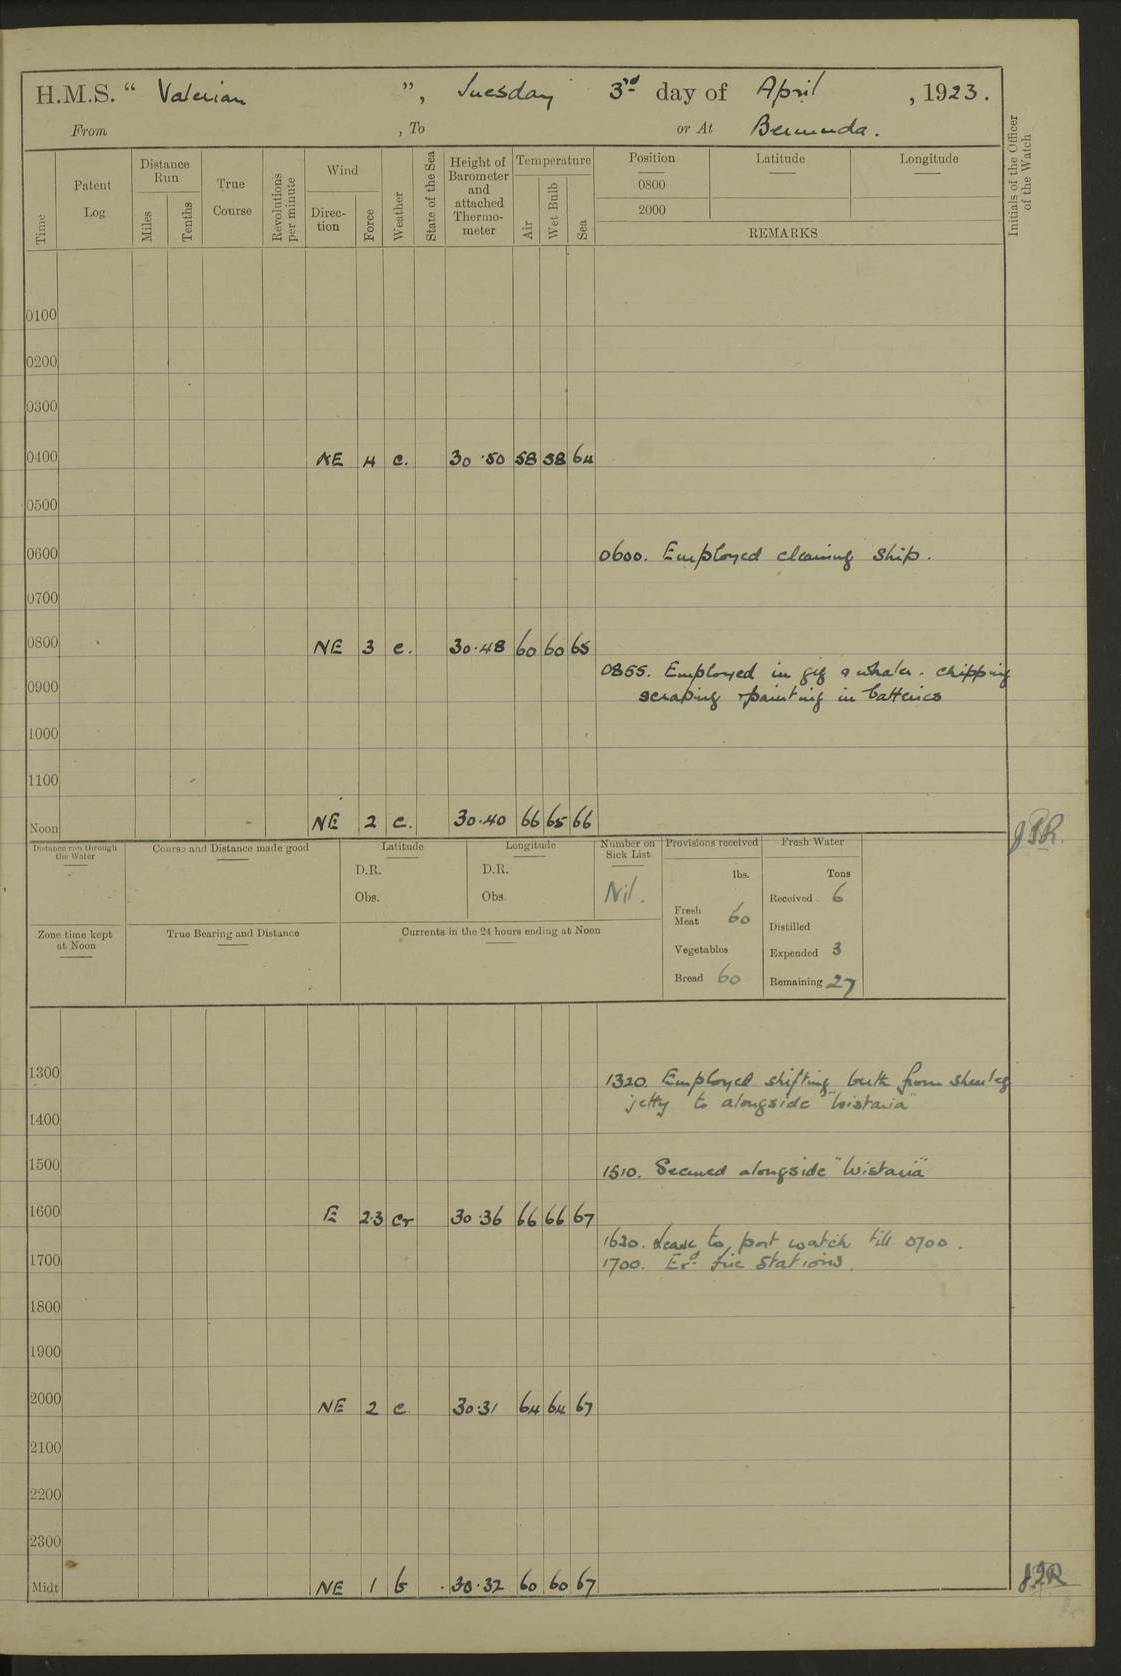 H.M.S. " Valerian ", Tuesday 3rd day of April , 1923.
From , To or At Bermuda.
Time
Patent Log
Distance Run
Miles
Tenths
True Course
Revolutions per minute
Wind
Direc-tion
Force
Weather
State of the Sea
Height of Barometer and attached Thermo-meter
Temperature
Air
Wet Bulb
Sea
Position
0800
2000
Latitude
Longitude
REMARKS
Initials of the Officer of the Watch
0100
0200
0300
0400 NE 4 c. 30.50 58 58 64
0500
0600 0600. Employed cleaning ship.
0700
0800 NE 3 c. 30.48 60 60 65
0855. Employed in gig & whaler. chipping
0900 scraping & painting in batteries
1000
1100
Noon NE 2 c. 30.40 66 65 66
Distance run through the Water
Course and Distance made good
Latitude
D.R.
Obs.
Longitude
D.R.
Obs.
Number on Sick List
Nil.
Provisions received
lbs.
Fresh Meat 60
Vegetables
Bread 60
Fresh Water
Tons
Received 6
Distilled
Expended 3
Remaining 27
Zone time kept at Noon
True Bearing and Distance
Currents in the 24 hours ending at Noon
1300 1320. Employed shifting berth from
jetty to alongside "Wistaria"
1400
1500 1510. Secured alongside "Wistaria"
1600 E 2.3 cr 30.36 66 66 67
1630. Leave to port watch till 0700.
1700 1700. Exd fire stations.
1800
1900
2000 NE 2 c. 30.31 64 64 67
2100
2200
2300
Midt NE 1 b 30.32 60 60 67